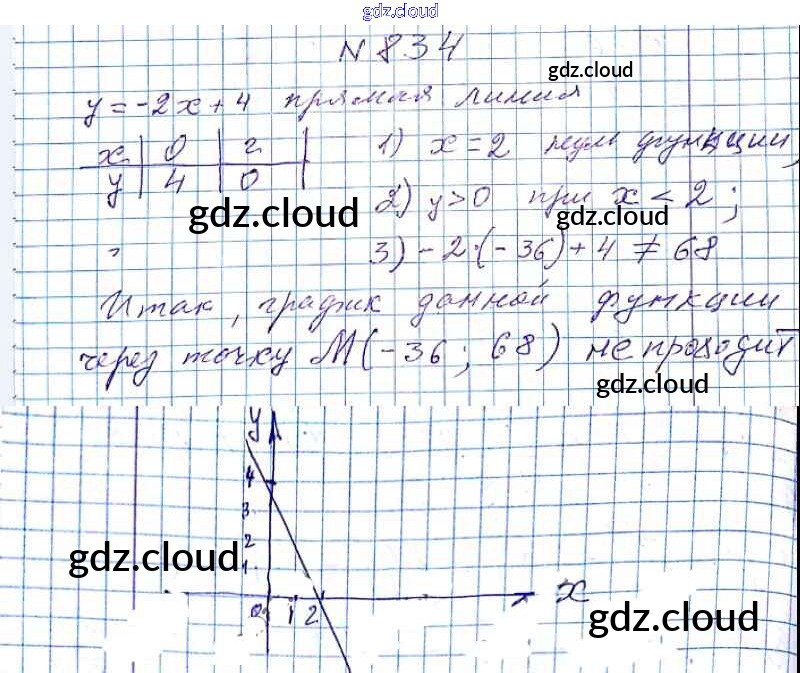 gdz.cloud
N 834
gdz.cloud
y = -2x + 4 прямая линия
x | 0 | 2 |
y | 4 | 0
1) x = 2 нуль функции,
gdz.cloud
2) y > 0 при x < 2;
gdz.cloud
3) -2·(-36) + 4 ≠ 68
Итак, график данной функции
через точку M(-36; 68) не проходит
gdz.cloud
y
4
3
2
1
gdz.cloud
0 1 2
x
gdz.cloud